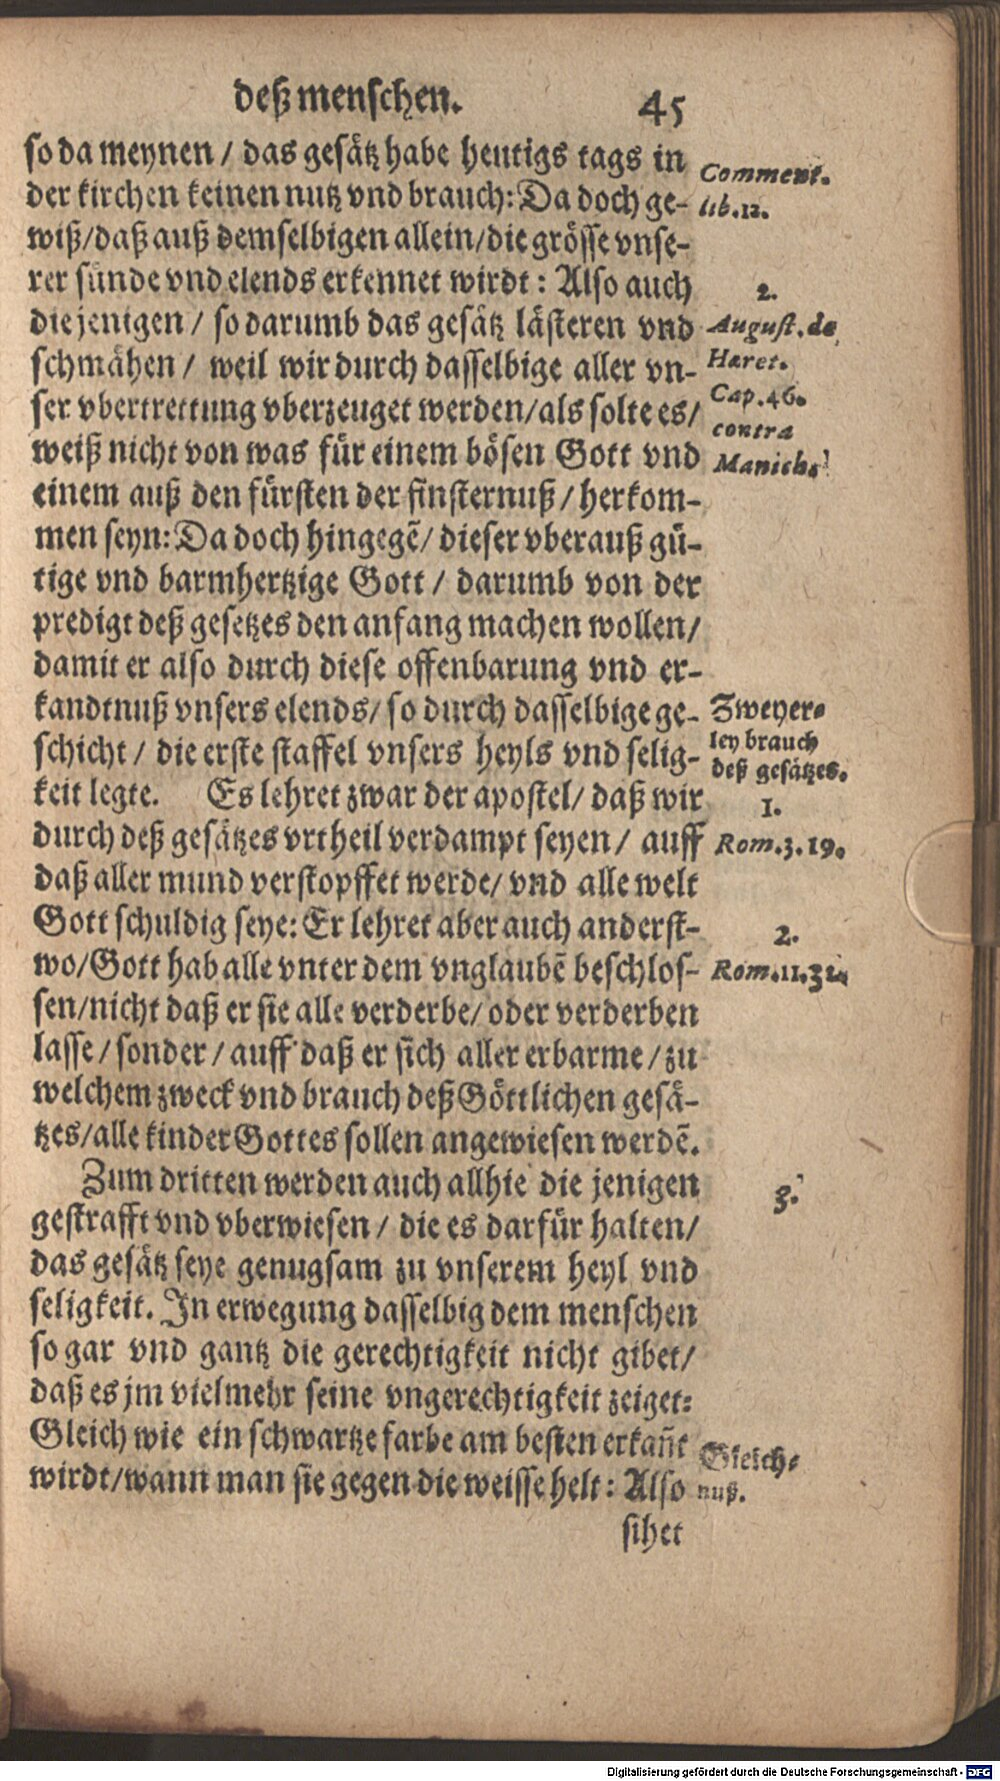 deß menschen. 45
so da meynen / das gesätz habe heutigs tags in
der kirchen keinen nutz vnd brauch: Da doch ge-
wiß/daß auß demselbigen allein/die grösse vnse-
rer sünde vnd elends erkennet wirdt: Also auch
die jenigen / so darumb das gesätz lästeren vnd
schmähen / weil wir durch dasselbige aller vn-
ser vbertrettung vberzeuget werden/als solte es/
weiß nicht von was für einem bösen Gott vnd
einem auß den fürsten der finsternuß / herkom-
men seyn: Da doch hingegẽ/ dieser vberauß gü-
tige vnd barmhertzige Gott / darumb von der
predigt deß gesetzes den anfang machen wollen/
damit er also durch diese offenbarung vnd er-
kandtnuß vnsers elends/ so durch dasselbige ge-
schicht / die erste staffel vnsers heyls vnd selig-
keit legte. Es lehret zwar der apostel/ daß wir
durch deß gesätzes vrtheil verdampt seyen / auff
daß aller mund verstopffet werde/ vnd alle welt
Gott schuldig seye: Er lehret aber auch anderst-
wo/Gott hab alle vnter dem vnglaubẽ beschlos-
sen/nicht daß er sie alle verderbe/ oder verderben
lasse / sonder / auff daß er sich aller erbarme / zu
welchem zweck vnd brauch deß Göttlichen gesä-
tzes/alle kinder Gottes sollen angewiesen werdẽ.
Zum dritten werden auch allhie die jenigen
gestrafft vnd vberwiesen / die es darfür halten/
das gesätz seye genugsam zu vnserem heyl vnd
seligkeit. In erwegung dasselbig dem menschen
so gar vnd gantz die gerechtigkeit nicht gibet/
daß es jm vielmehr seine vngerechtigkeit zeiget:
Gleich wie ein schwartze farbe am besten erkañt
wirdt/wann man sie gegen die weisse helt: Also
sihet
Comment.
lib.12.
2.
August.de
Hæret.
Cap.46.
contra
Manich.
Zweyer-
ley brauch
deß gesätzes.
1.
Rom.3.19.
2.
Rom.11.32.
3.
Gleich-
nuß.
Digitalisierung gefördert durch die Deutsche Forschungsgemeinschaft - DFG